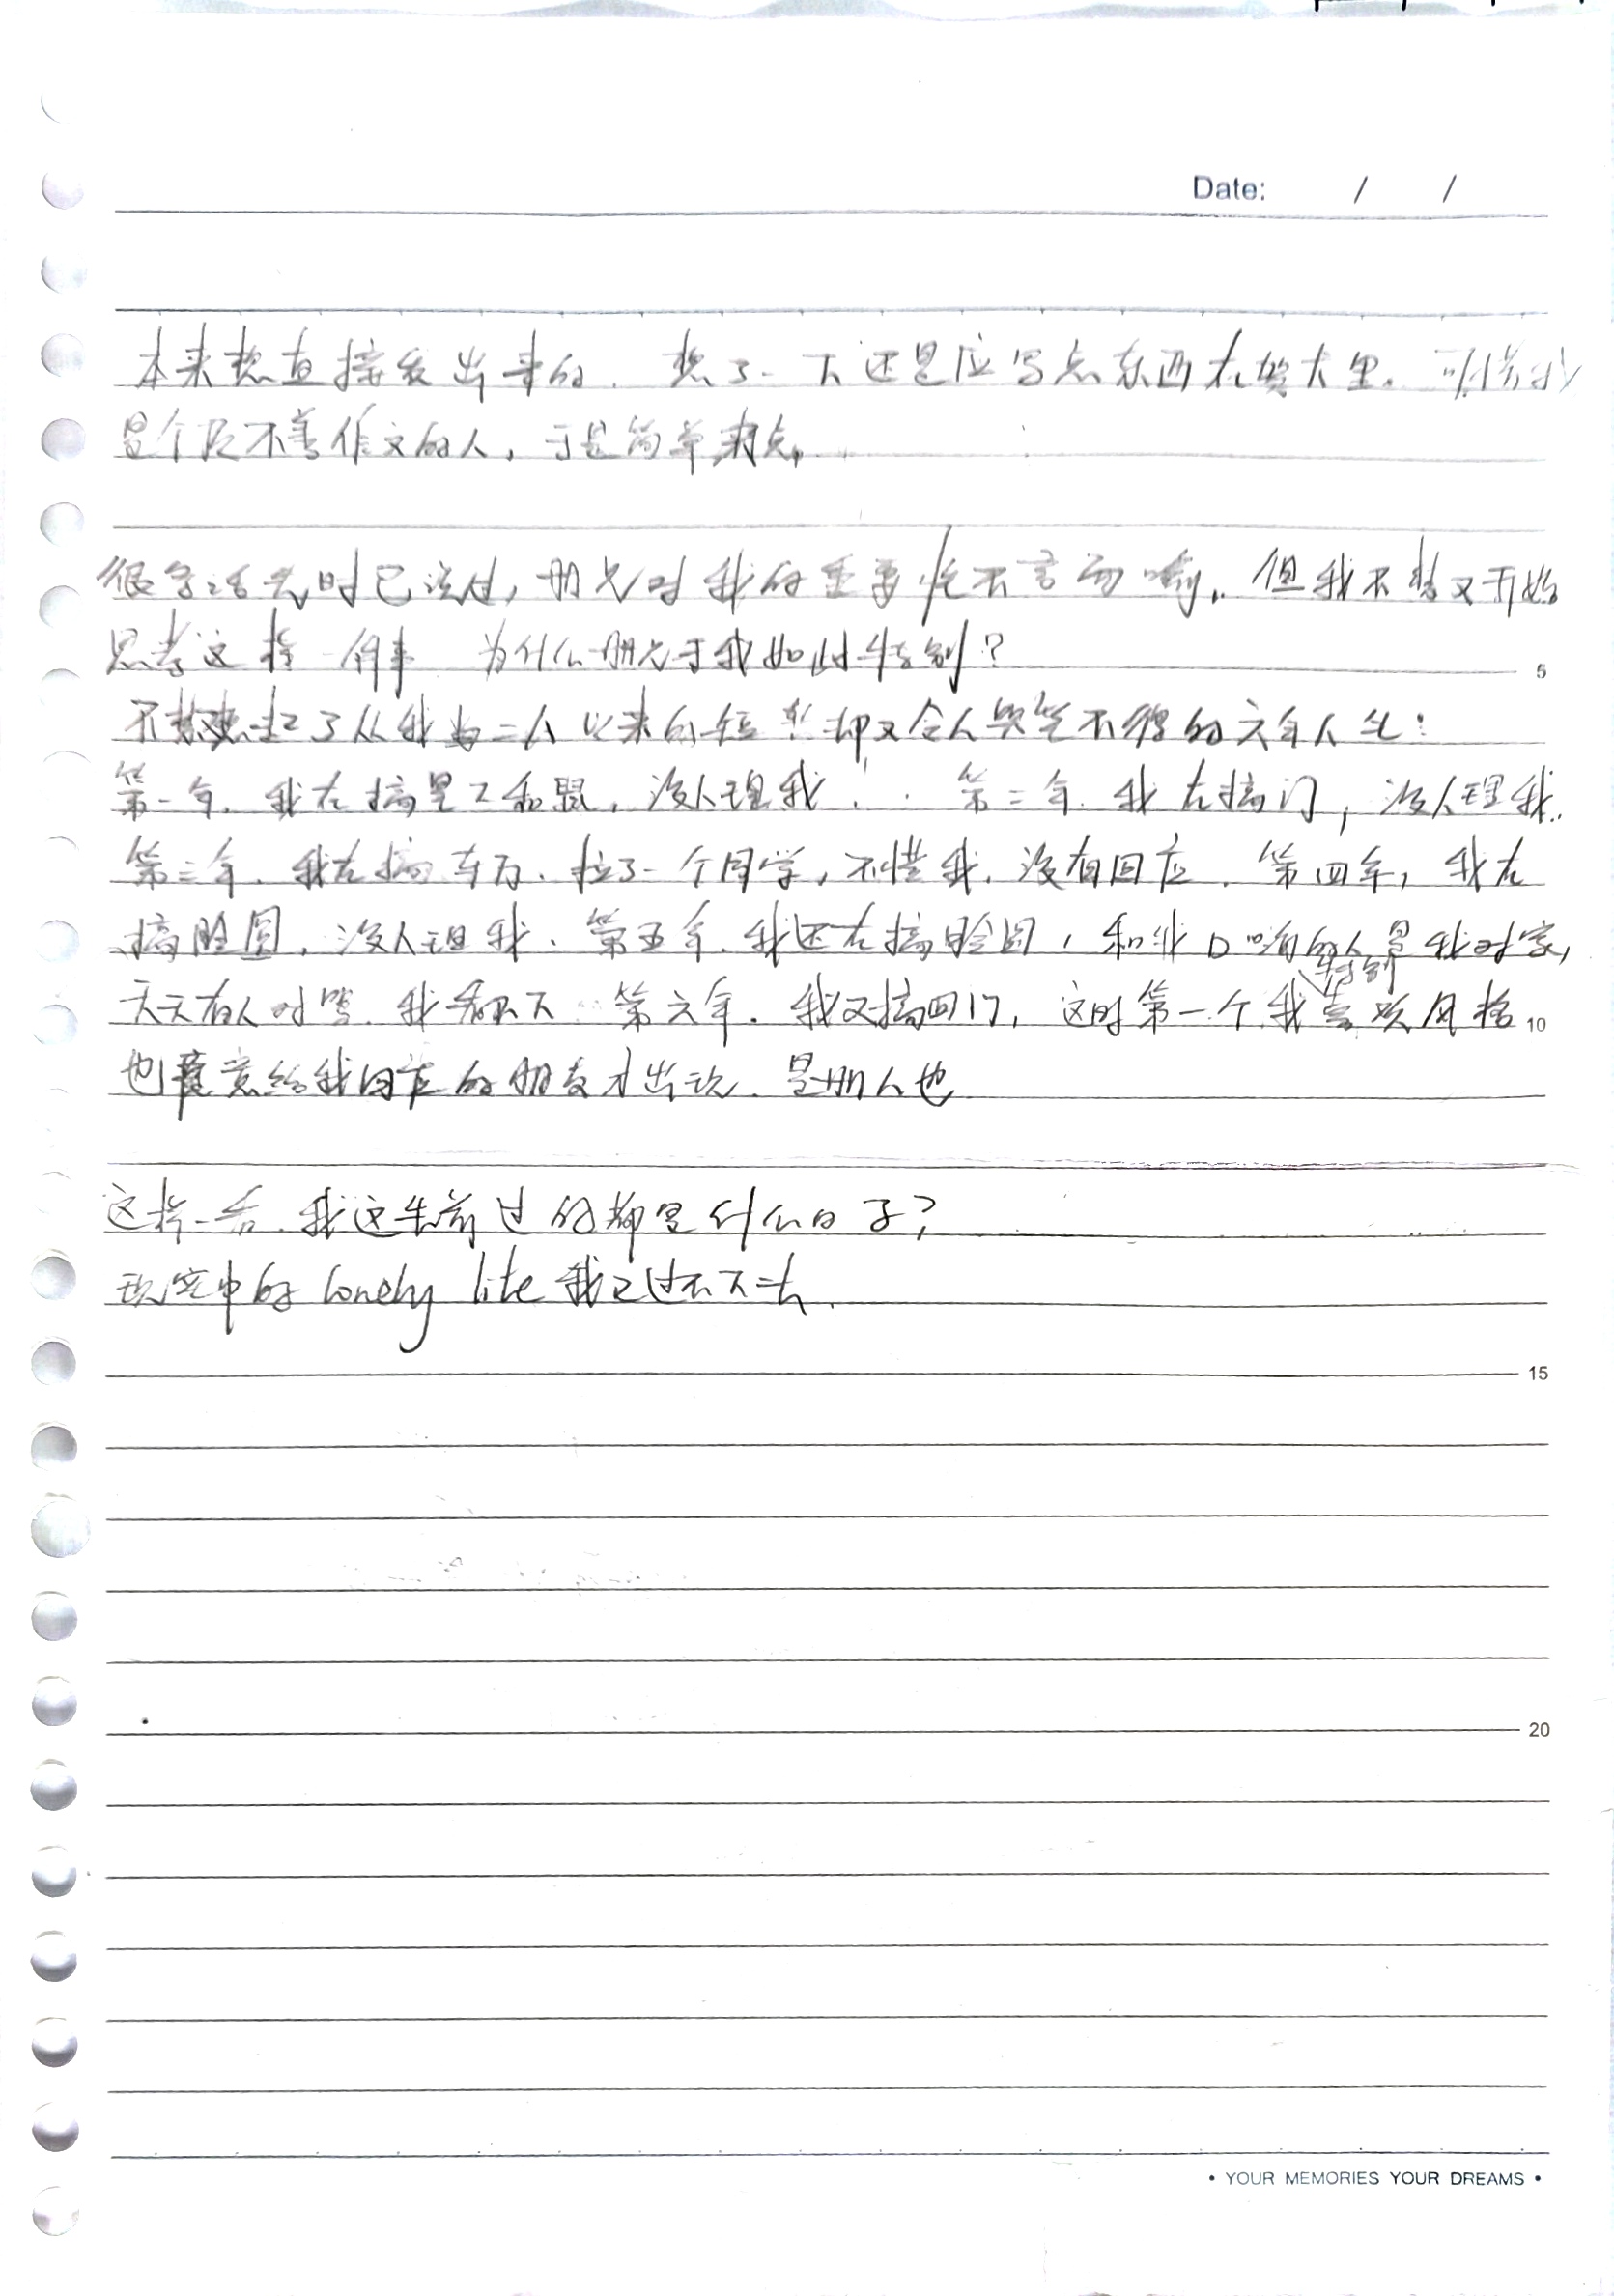 Date: / /
本来想直接发出来的、想了一下还是应写点东西在贺卡里。可惜我
是个极不善作文的人，于是简单来点。
很多话先时已说过，册兄对我的重要性不言而喻。但我不禁又开始
思考这样一件事 为什么册兄于我如此特别？ 5
不禁想起了从我当二人以来的短暂却又令人哭笑不得的六年人生：
第一年，我在搞星工和鼠，没人理我. 第二年，我在搞门，没人理我.
第三年，我在搞车万、拉了一个同学，不睬我，没有回应. 第四年，我在
搞脸圆，没人理我、第五年，我还在搞脸圆，和我口嗨的人是我对家，
天天有人对骂，我看不下. 第六年，我又搞回门，这时第一个我特别喜欢风格 10
也愿意给我回应的朋友才出现、是册人也
这样一看，我这先前过的都是什么日子？
现实中的 lonely life 我已过不下去.
15
20
• YOUR MEMORIES YOUR DREAMS •